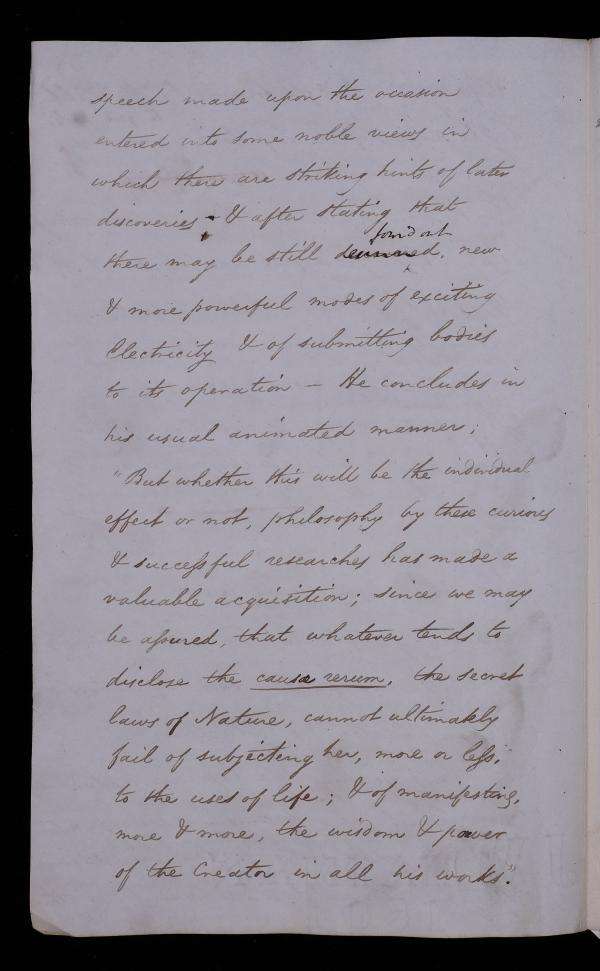 speech made upon the occasion
entered into some noble views in
which there are striking hints of later
discoveries - & after stating that
found out
there may be still , new
& more powerful modes of exciting
Electricity & of submitting bodies
to its operation — He concludes in
his usual animated manner;
"But whether this will be the individual
effect or not, philosophy by these curious
& successful researches has made a
valuable acquisition; since we may
be assured, that whatever tends to
disclose the causæ rerum, the secret
laws of Nature, cannot ultimately
fail of subjecting her, more or less,
to the uses of life; & of manifesting,
more & more, the wisdom & power
of the Creator in all his works."